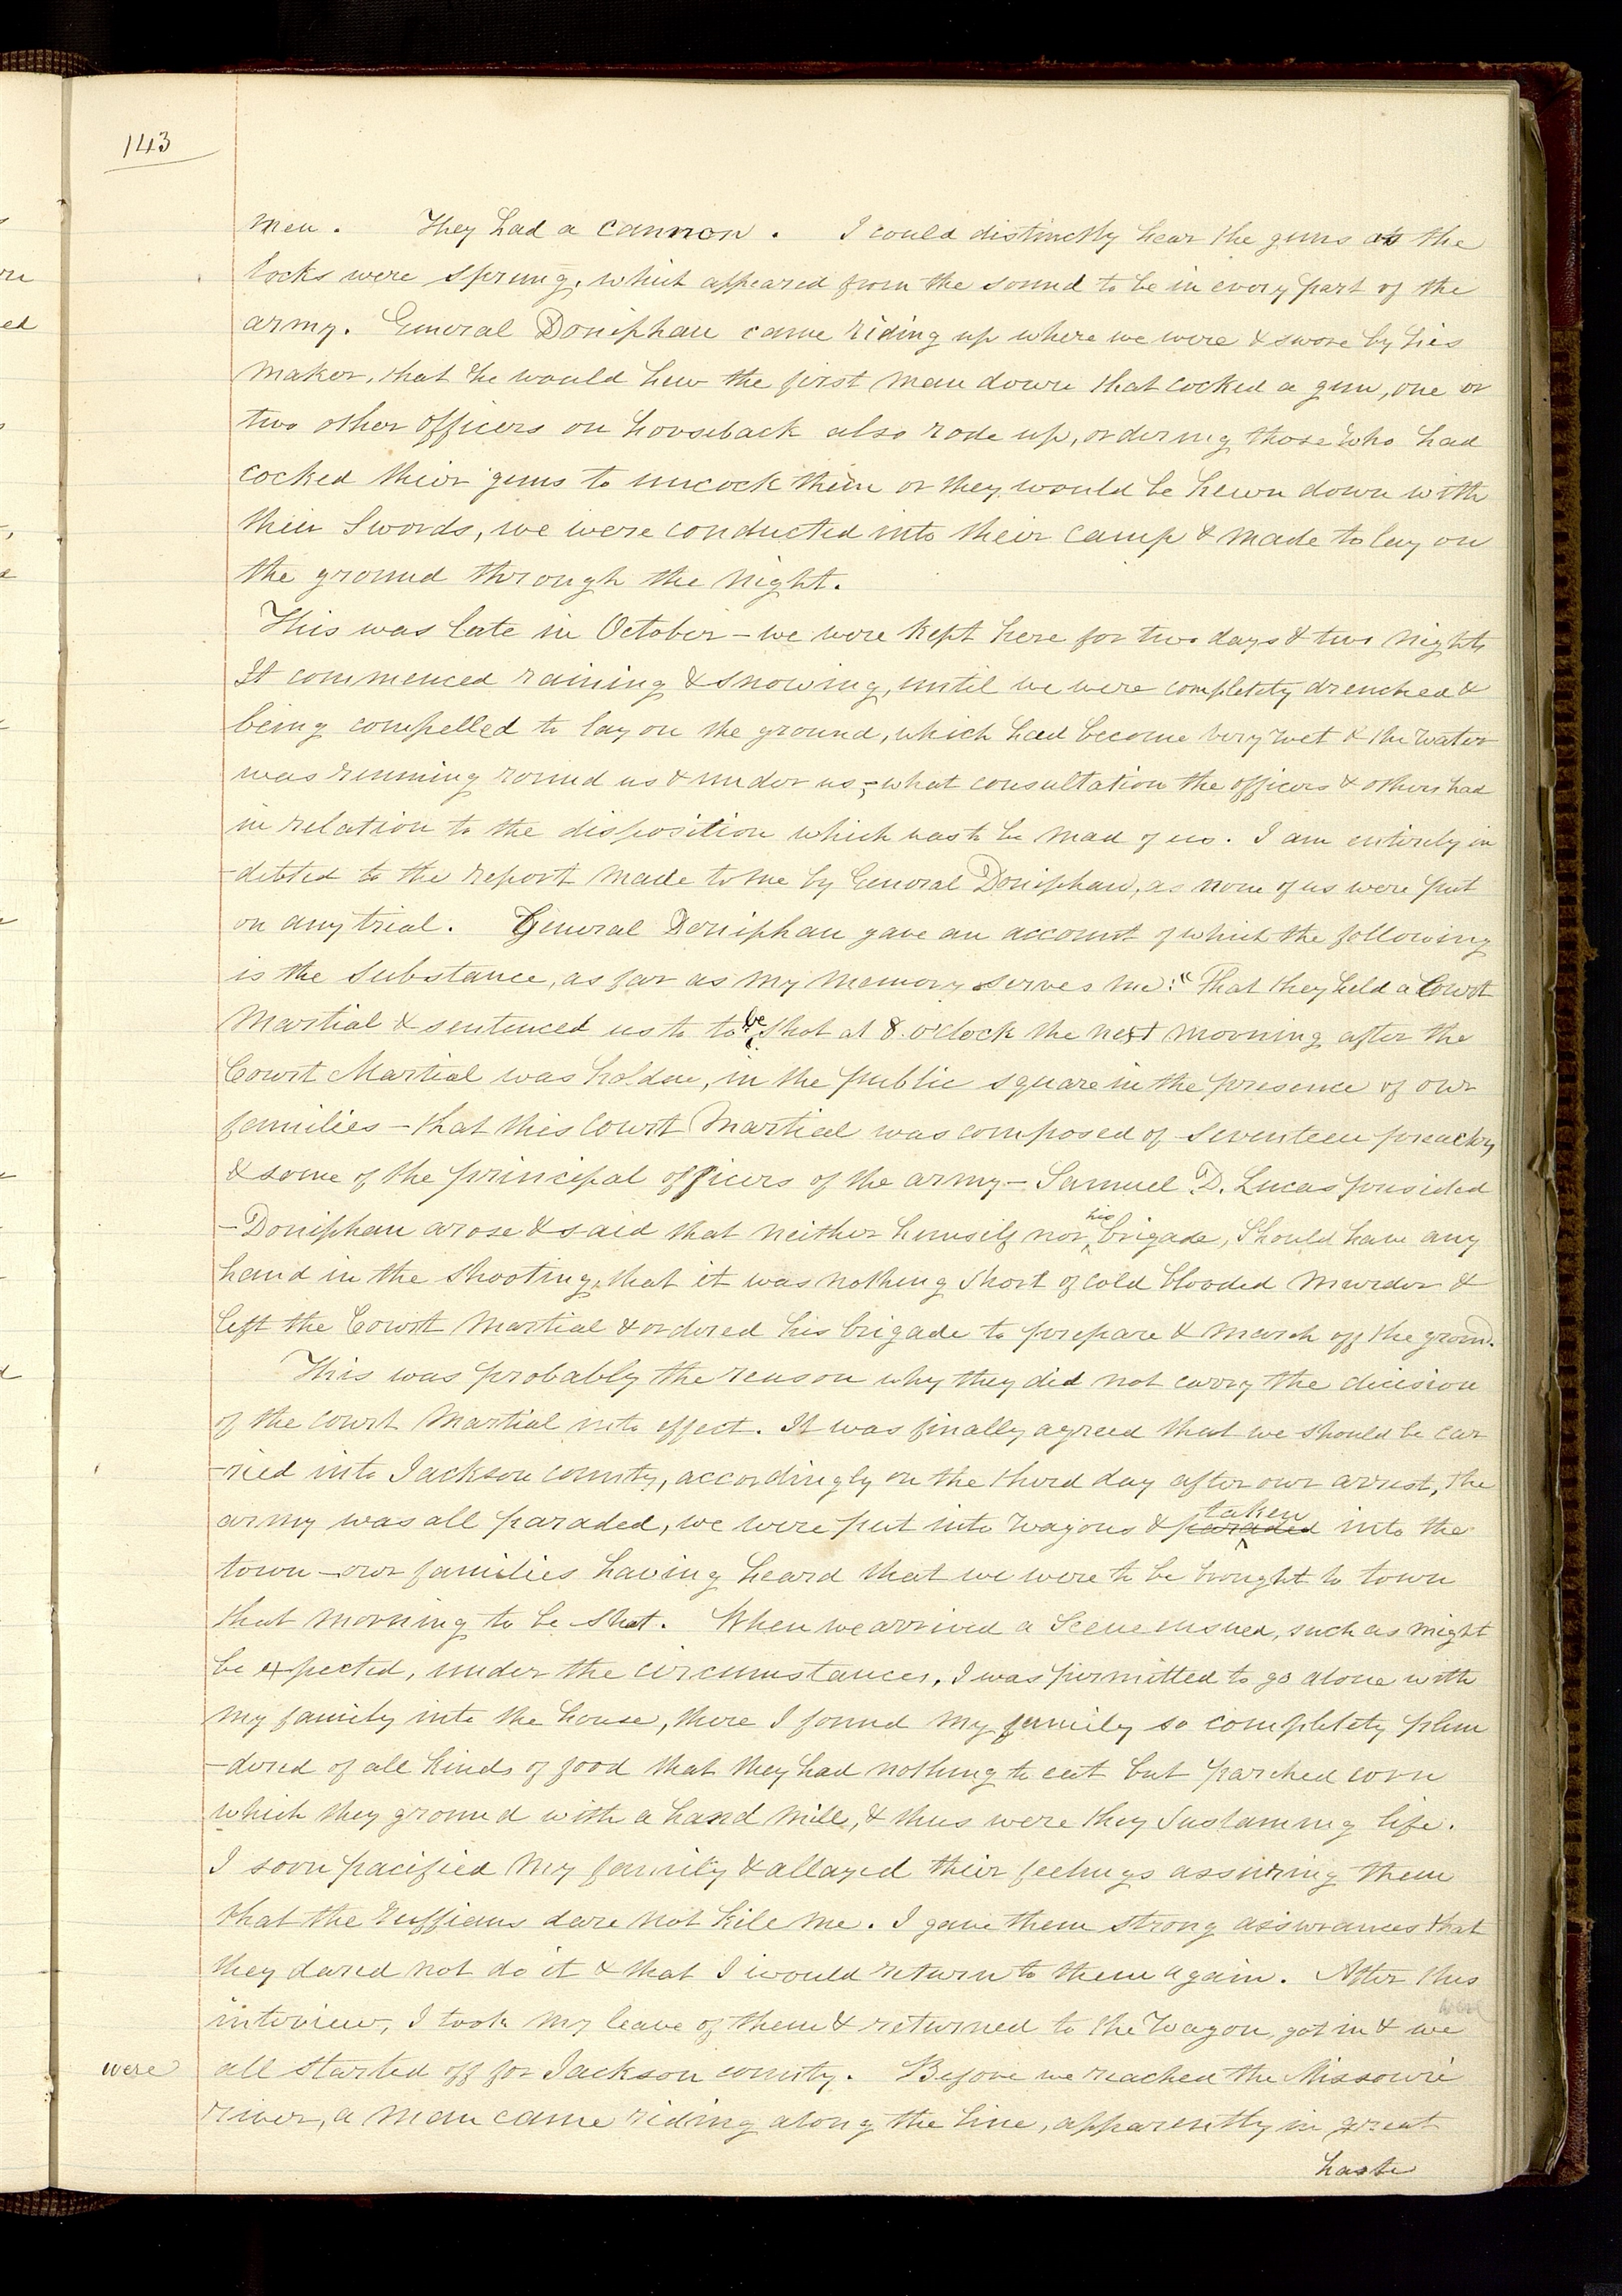 143
men. They had a cannon. I could distinctly hear the guns as the
locks were sprung, which appeared from the sound to be in every part of the
army. General Doniphan came riding up where we were & swore by his
maker, that he would hew the first man down that cocked a gun, one or
two other officers on horseback also rode up, ordering those who had
cocked their guns to uncock them or they would be hewn down with
their Swords, we were conducted into their camp & made to lay on
the ground through the night.
This was late in October – we were kept here for two days & two nights
It commenced raining & snowing, until we were completely drenched &
being compelled to lay on the ground, which had become very wet & the water
was running round us & under us;– what consultation the officers & others had
in relation to the disposition which was to be mad of us. I am entirely in
-debted to the report made to me by General Doniphan, as none of us were put
on any trial. General Doniphan gave an account of which the following
is the Substance, as far as my memory serves me: "That they held a Court
Martial & sentenced us to to be shot at 8. o'clock the next morning after the
Court Martial was holden, in the public square in the presence of our
families – that this Court Martial was composed of seventeen preachers
& some of the principal officers of the army – Samuel D. Lucas presided
– Doniphan arose & said that neither himself nor his brigade, should have any
hand in the shooting, that it was nothing short of cold blooded murder &
left the Court Martial & ordered his brigade to prepare & march off the ground.
This was probably the reason why they did not carry the decision
of the court Martial into effect. It was finally agreed that we should be car
-ried into Jackson county, accordingly on the third day after our arrest, the
army was all paraded, we were put into wagons & paraded taken into the
town – our families having heard that we were to be brought to town
that morning to be shot. When we arrived a scene ensued, such as might
be expected, under the circumstances, I was permitted to go alone with
my family into the house, there I found my family so completely plun
-dered of all kinds of food that they had nothing to eat but parched corn
which they ground with a hand mill, & thus were they sustaining life.
I soon pacified my family & allayed their feelings assuring them
that the ruffians dare not kill me. I gave them strong assurances that
they dared not do it & that I would return to them again. After this
interview, I took my leave of them & returned to the wagon got in & we
were all started off for Jackson county. Before we reached the Missouri
river, a man came riding along the line, apparently in great
haste